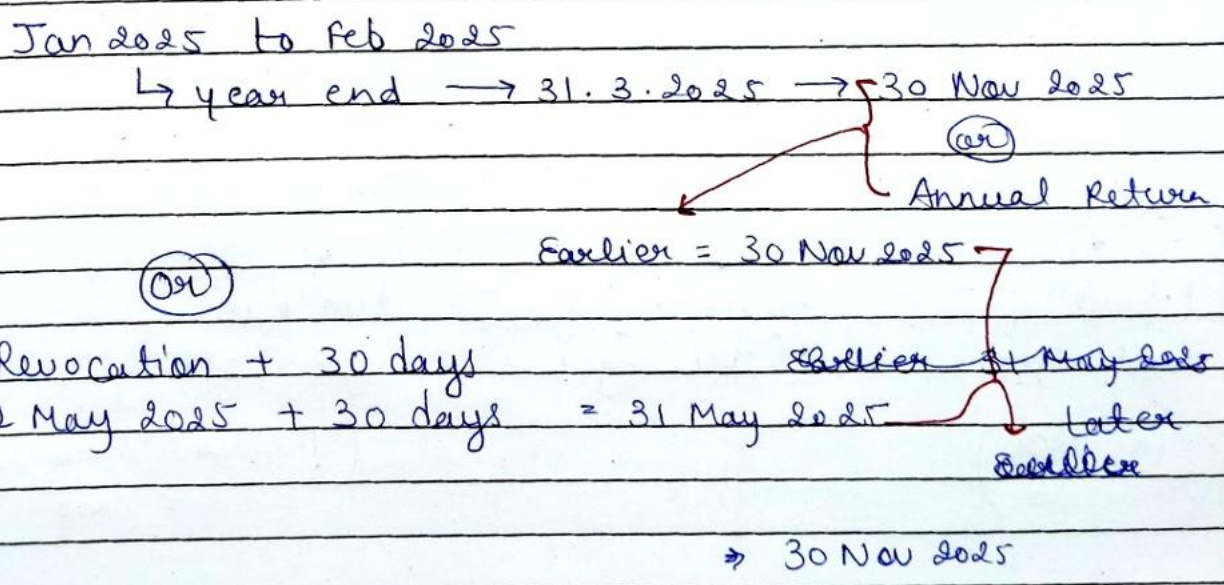 Jan 2025 to Feb 2025
↳ year end → 31.3.2025 → 30 Nov 2025
(or)
Annual Return
Earlier = 30 Nov 2025
(or)
Revocation + 30 days Earlier 31 May 2025
May 2025 + 30 days = 31 May 2025 Later
Earlier
⇒ 30 Nov 2025